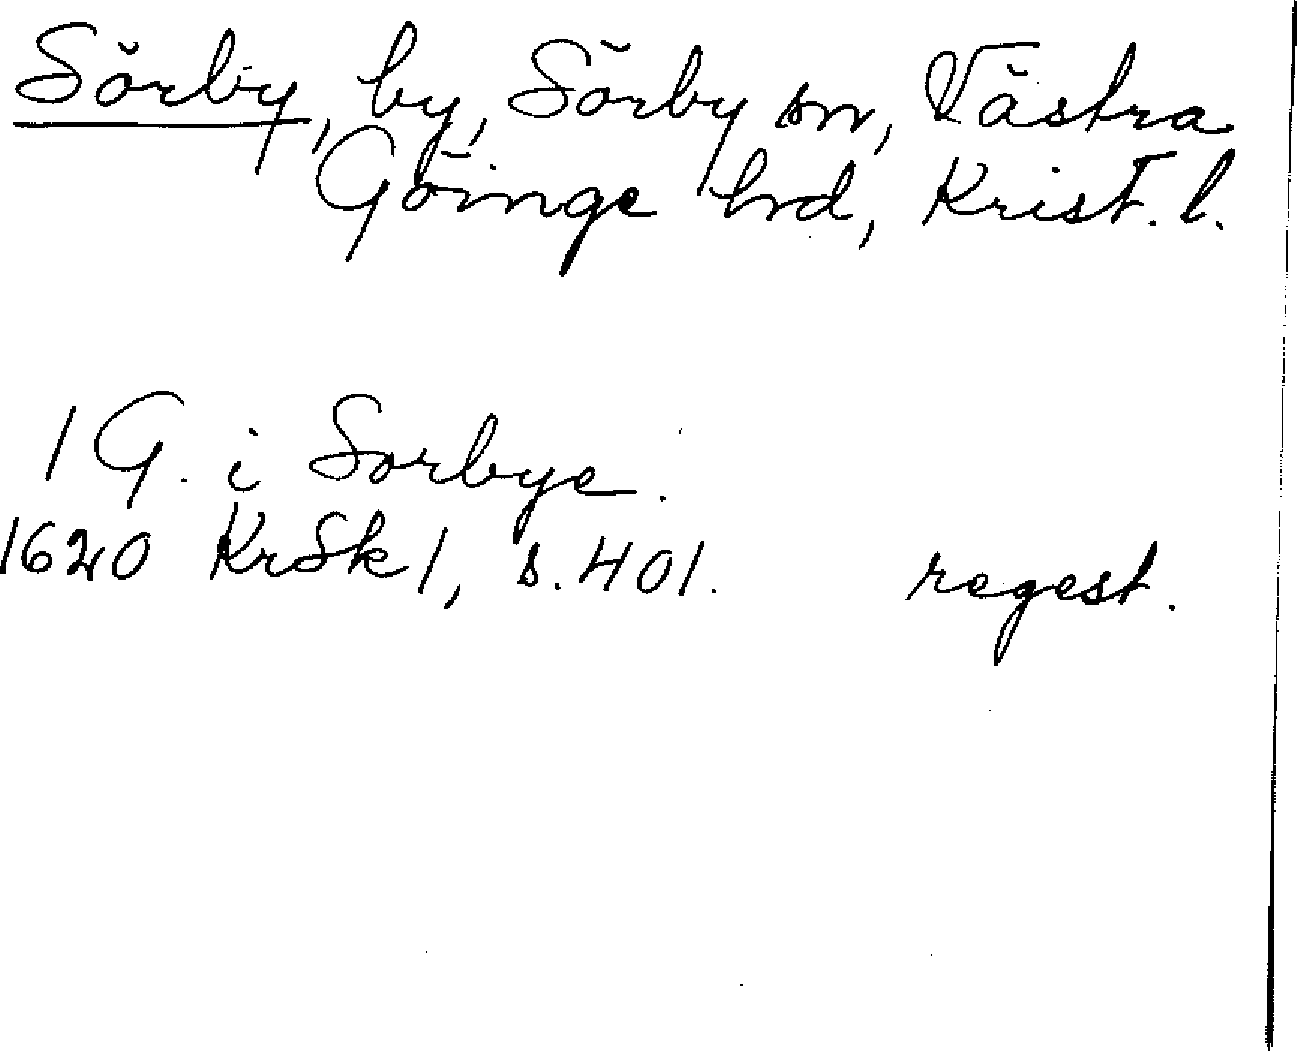 Sörby, by, Sörby sn, Västra
Göinge hrd, Krist. l.
1 G. i Sorbye.
1620 KrSk 1, s. 401. regest.